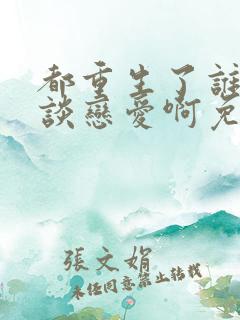 都重生了誰
談戀愛啊免
張文娟
未任同意禁止轉載